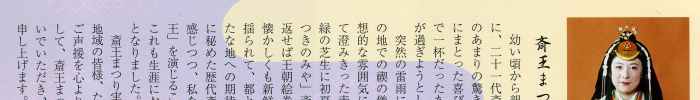 斎王まつ
幼い頃から親
に、二十一代斎
のあまりの驚き
にまとった喜び
で一杯だった
が過ぎようとし
突然の雷雨に
の地での禊の儀
想的な雰囲気に
て澄みきった青
緑の芝生に初夏
つきのみや」斎
返せば王朝絵巻
懐かしくも新鮮
揺られて、都と
たな地への期待
に秘めた歴代斎
感じつつ、私な
王」を演じるこ
これも生涯にお
となりました。
斎王まつり実
地域の皆様、た
ご声援を心より
して、斎王まつ
いでいただき、
申し上げます。